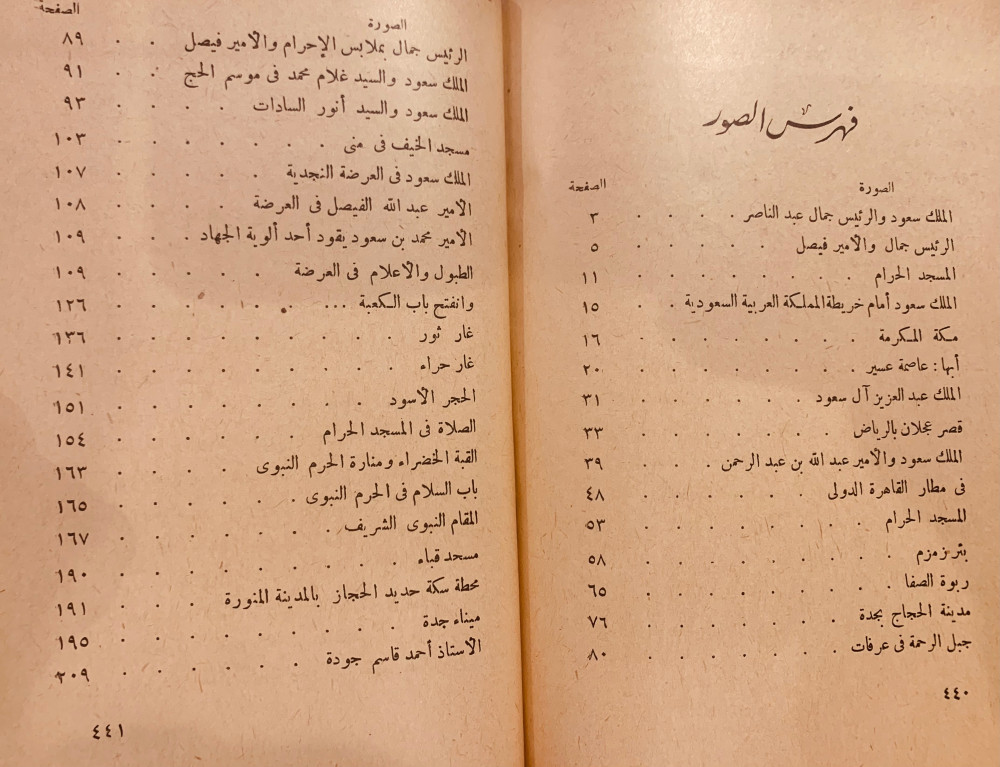 فهرس الصور
الصورة الصفحة
الملك سعود والرئيس جمال عبد الناصر . . . . ٣
الرئيس جمال والأمير فيصل . . . . . . ٥
المسجد الحرام . . . . . . . . ١١
الملك سعود أمام خريطة المملكة العربية السعودية . . ١٥
مكة المكرمة . . . . . . . . ١٦
أبها : عاصمة عسير . . . . . . . . ٢٠
الملك عبد العزيز آل سعود . . . . . . ٣١
قصر عجلان بالرياض . . . . . . ٣٣
الملك سعود والأمير عبد الله بن عبد الرحمن . . . . ٣٩
فى مطار القاهرة الدولى . . . . . . ٤٨
المسجد الحرام . . . . . . . . ٥٣
بئر زمزم . . . . . . . . ٥٨
ربوة الصفا . . . . . . . . ٦٥
مدينة الحجاج بجدة . . . . . . . ٧٦
جبل الرحمة فى عرفات . . . . . . . ٨٠
٤٤٠
الصورة الصفحة
الرئيس جمال بملابس الإحرام والأمير فيصل . . ٨٩
الملك سعود والسيد غلام محمد فى موسم الحج . . ٩١
الملك سعود والسيد أنور السادات . . . . ٩٣
مسجد الخيف فى منى . . . . . . . ١٠٣
الملك سعود فى العرضة النجدية . . . . . ١٠٧
الأمير عبد الله الفيصل فى العرضة . . . . ١٠٨
الأمير محمد بن سعود يقود أحد ألوية الجهاد . . . ١٠٩
الطبول والأعلام فى العرضة . . . . . ١٠٩
وانفتح باب الكعبة ... . . . . . . ١٢٦
غار ثور . . . . . . . . . ١٣٦
غار حراء . . . . . . . . . ١٤١
الحجر الأسود . . . . . . . . ١٥١
الصلاة فى المسجد الحرام . . . . . . ١٥٤
القبة الخضراء ومنارة الحرم النبوى . . . . ١٦٣
باب السلام فى الحرم النبوى . . . . . . ١٦٥
المقام النبوى الشريف . . . . . . ١٦٧
مسجد قباء . . . . . . . . . ١٩٠
محطة سكة حديد الحجاز بالمدينة المنورة . . . . ١٩١
ميناء جدة . . . . . . . . . ١٩٥
الأستاذ أحمد قاسم جودة . . . . . . ٢٠٩
٤٤١